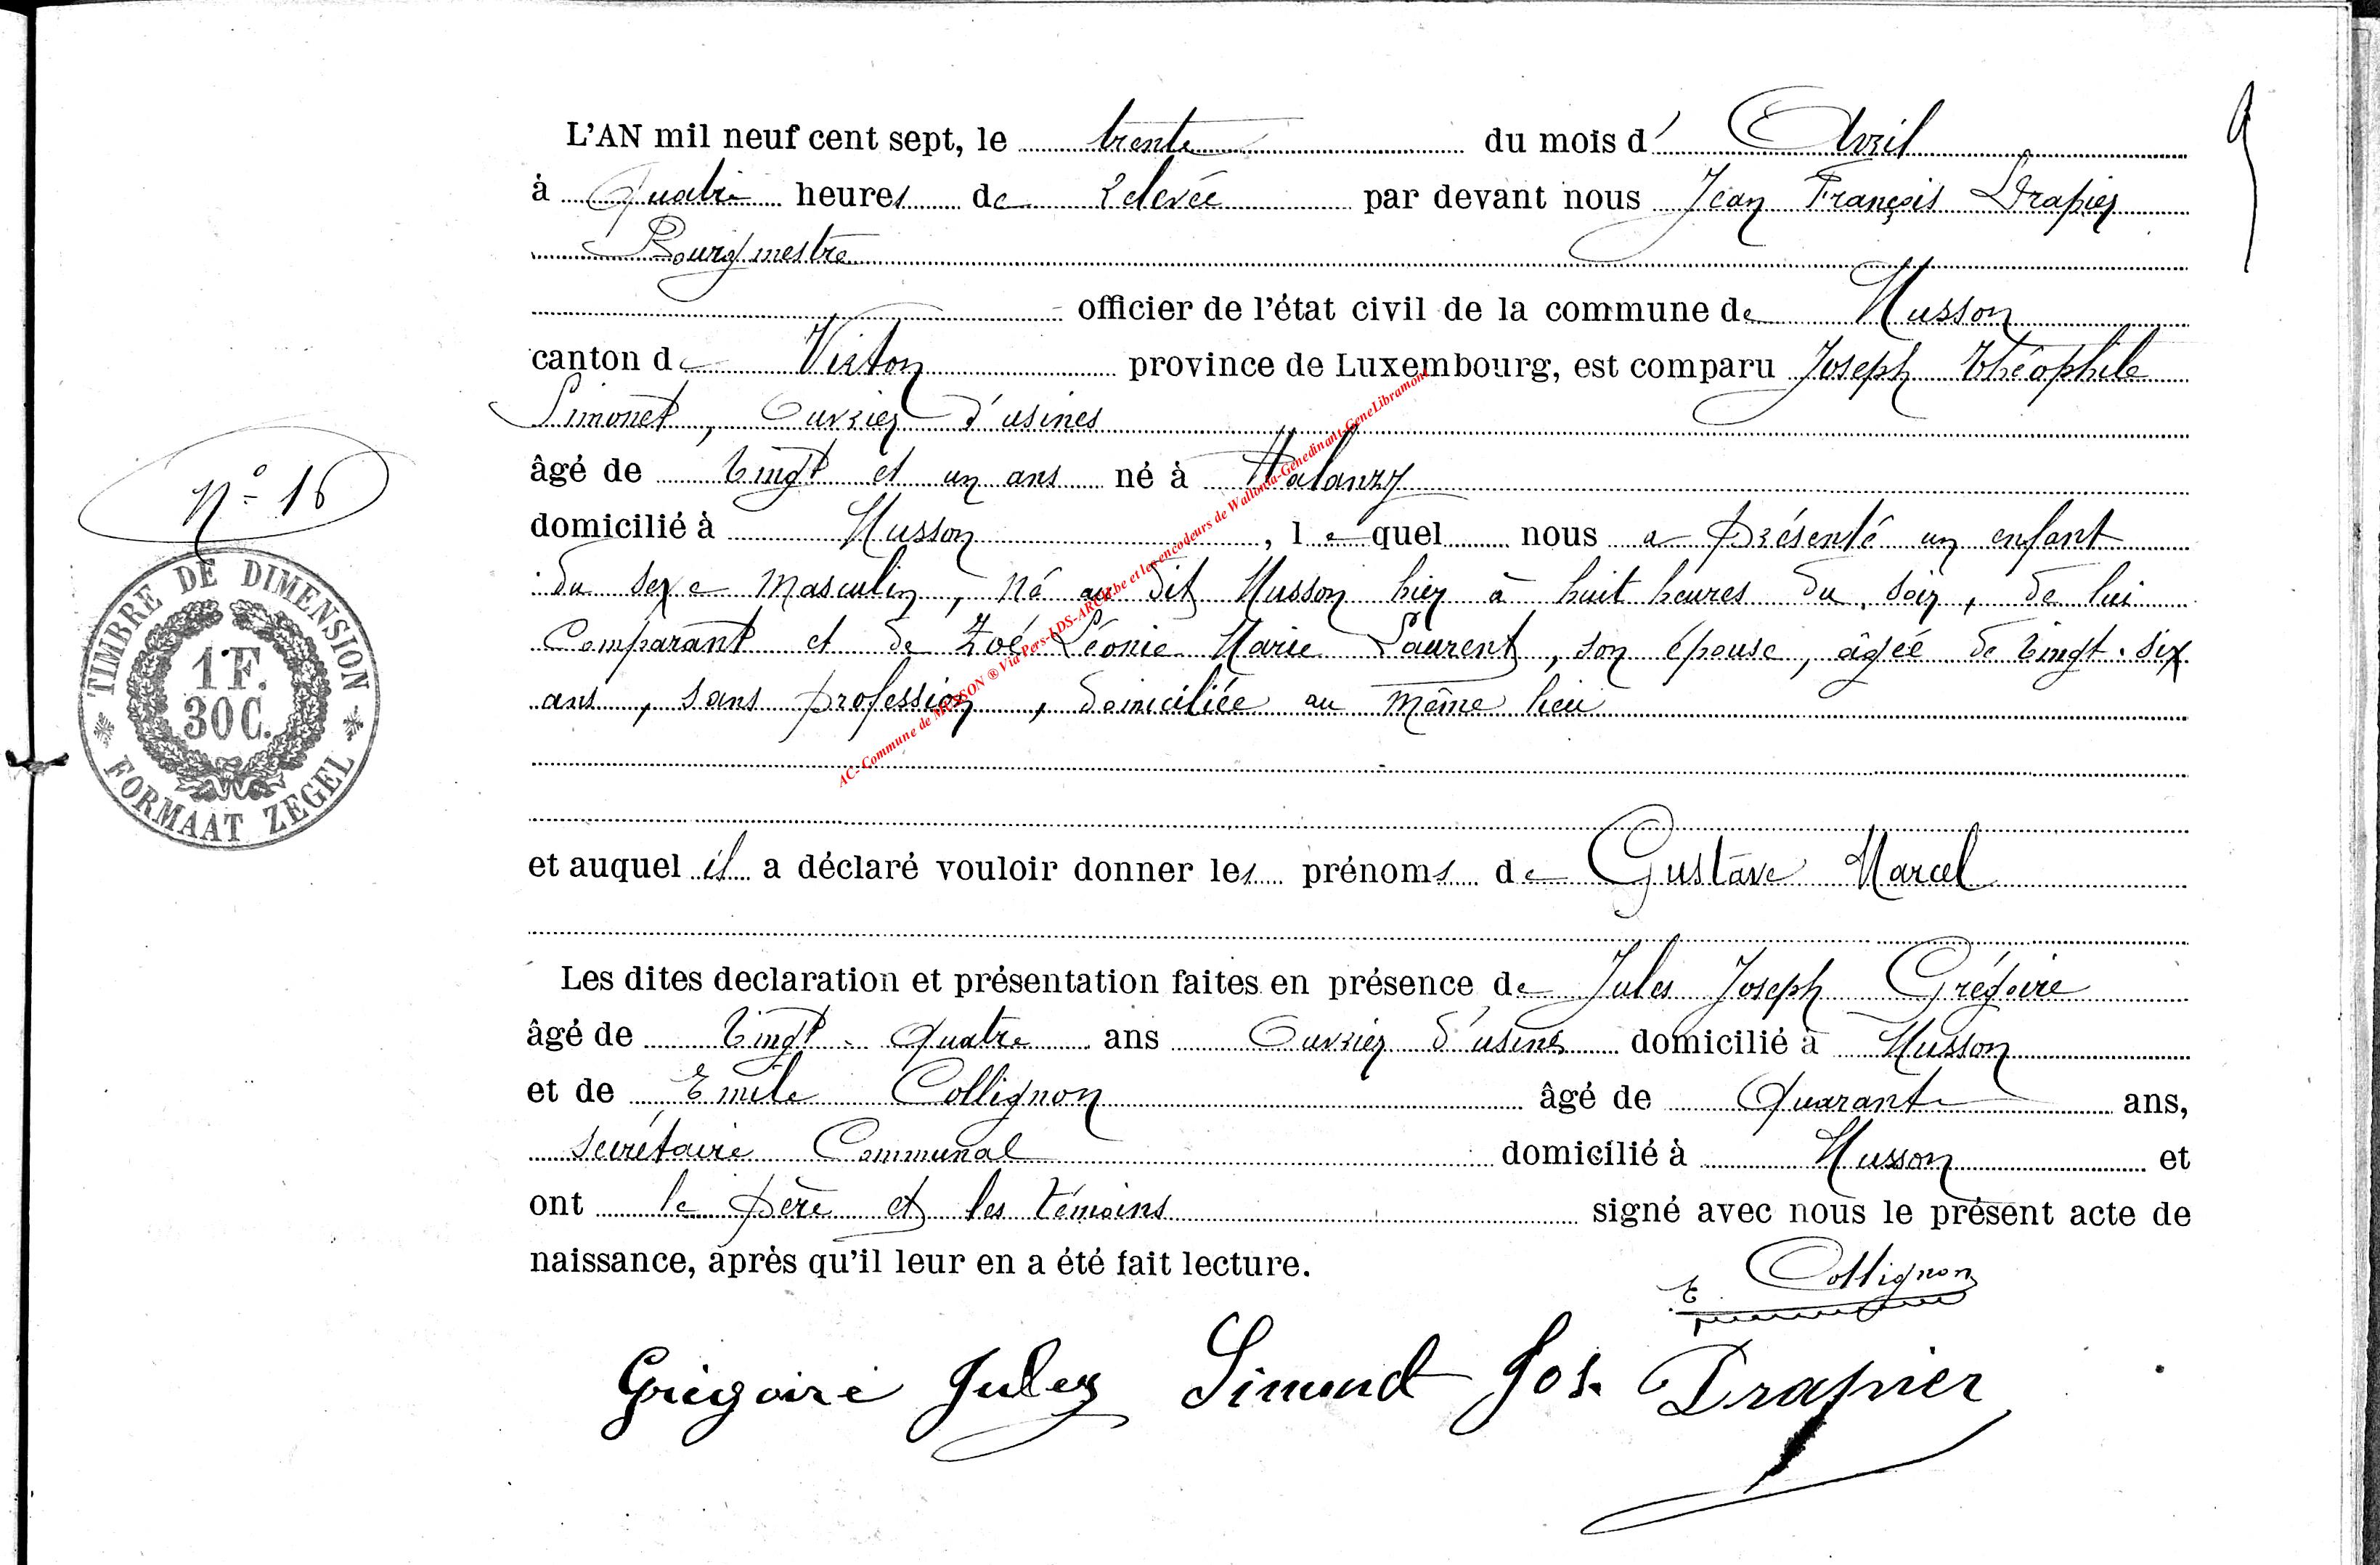 9
L'AN mil neuf cent sept, le trente du mois d' Avril
à Quatre heures de relevée par devant nous Jean François Drapier
Bourgmestre
officier de l'état civil de la commune de Musson
canton de Virton province de Luxembourg, est comparu Joseph Théophile
Simonet, Ouvrier d'usines
âgé de vingt et un ans né à Halanzy
domicilié à Musson, lequel nous a présenté un enfant
du sexe masculin, né au dit Musson hier à huit heures du soir, de lui
Comparant et de Zoé Léonie Marie Laurent, son épouse, âgée de vingt-six
ans, sans profession, domiciliée au même lieu
et auquel il a déclaré vouloir donner les prénoms de Gustave Marcel
Les dites declaration et présentation faites en présence de Jules Joseph Grégoire
âgé de vingt-quatre ans Ouvrier d'usines domicilié à Musson
et de Emile Collignon âgé de Quarante ans,
secrétaire Communal domicilié à Musson et
ont le père et les témoins signé avec nous le présent acte de
naissance, après qu'il leur en a été fait lecture.
E. Collignon
Grégoire Jules Simonet Jos. Drapier
N° 16
TIMBRE DE DIMENSION
1 F.
30 C.
FORMAAT ZEGEL
AC- Commune de MUSSON ® Via Pers-LDS-ARCH.be et les encodeurs de Wallonia-Genedinant-GeneLibramont